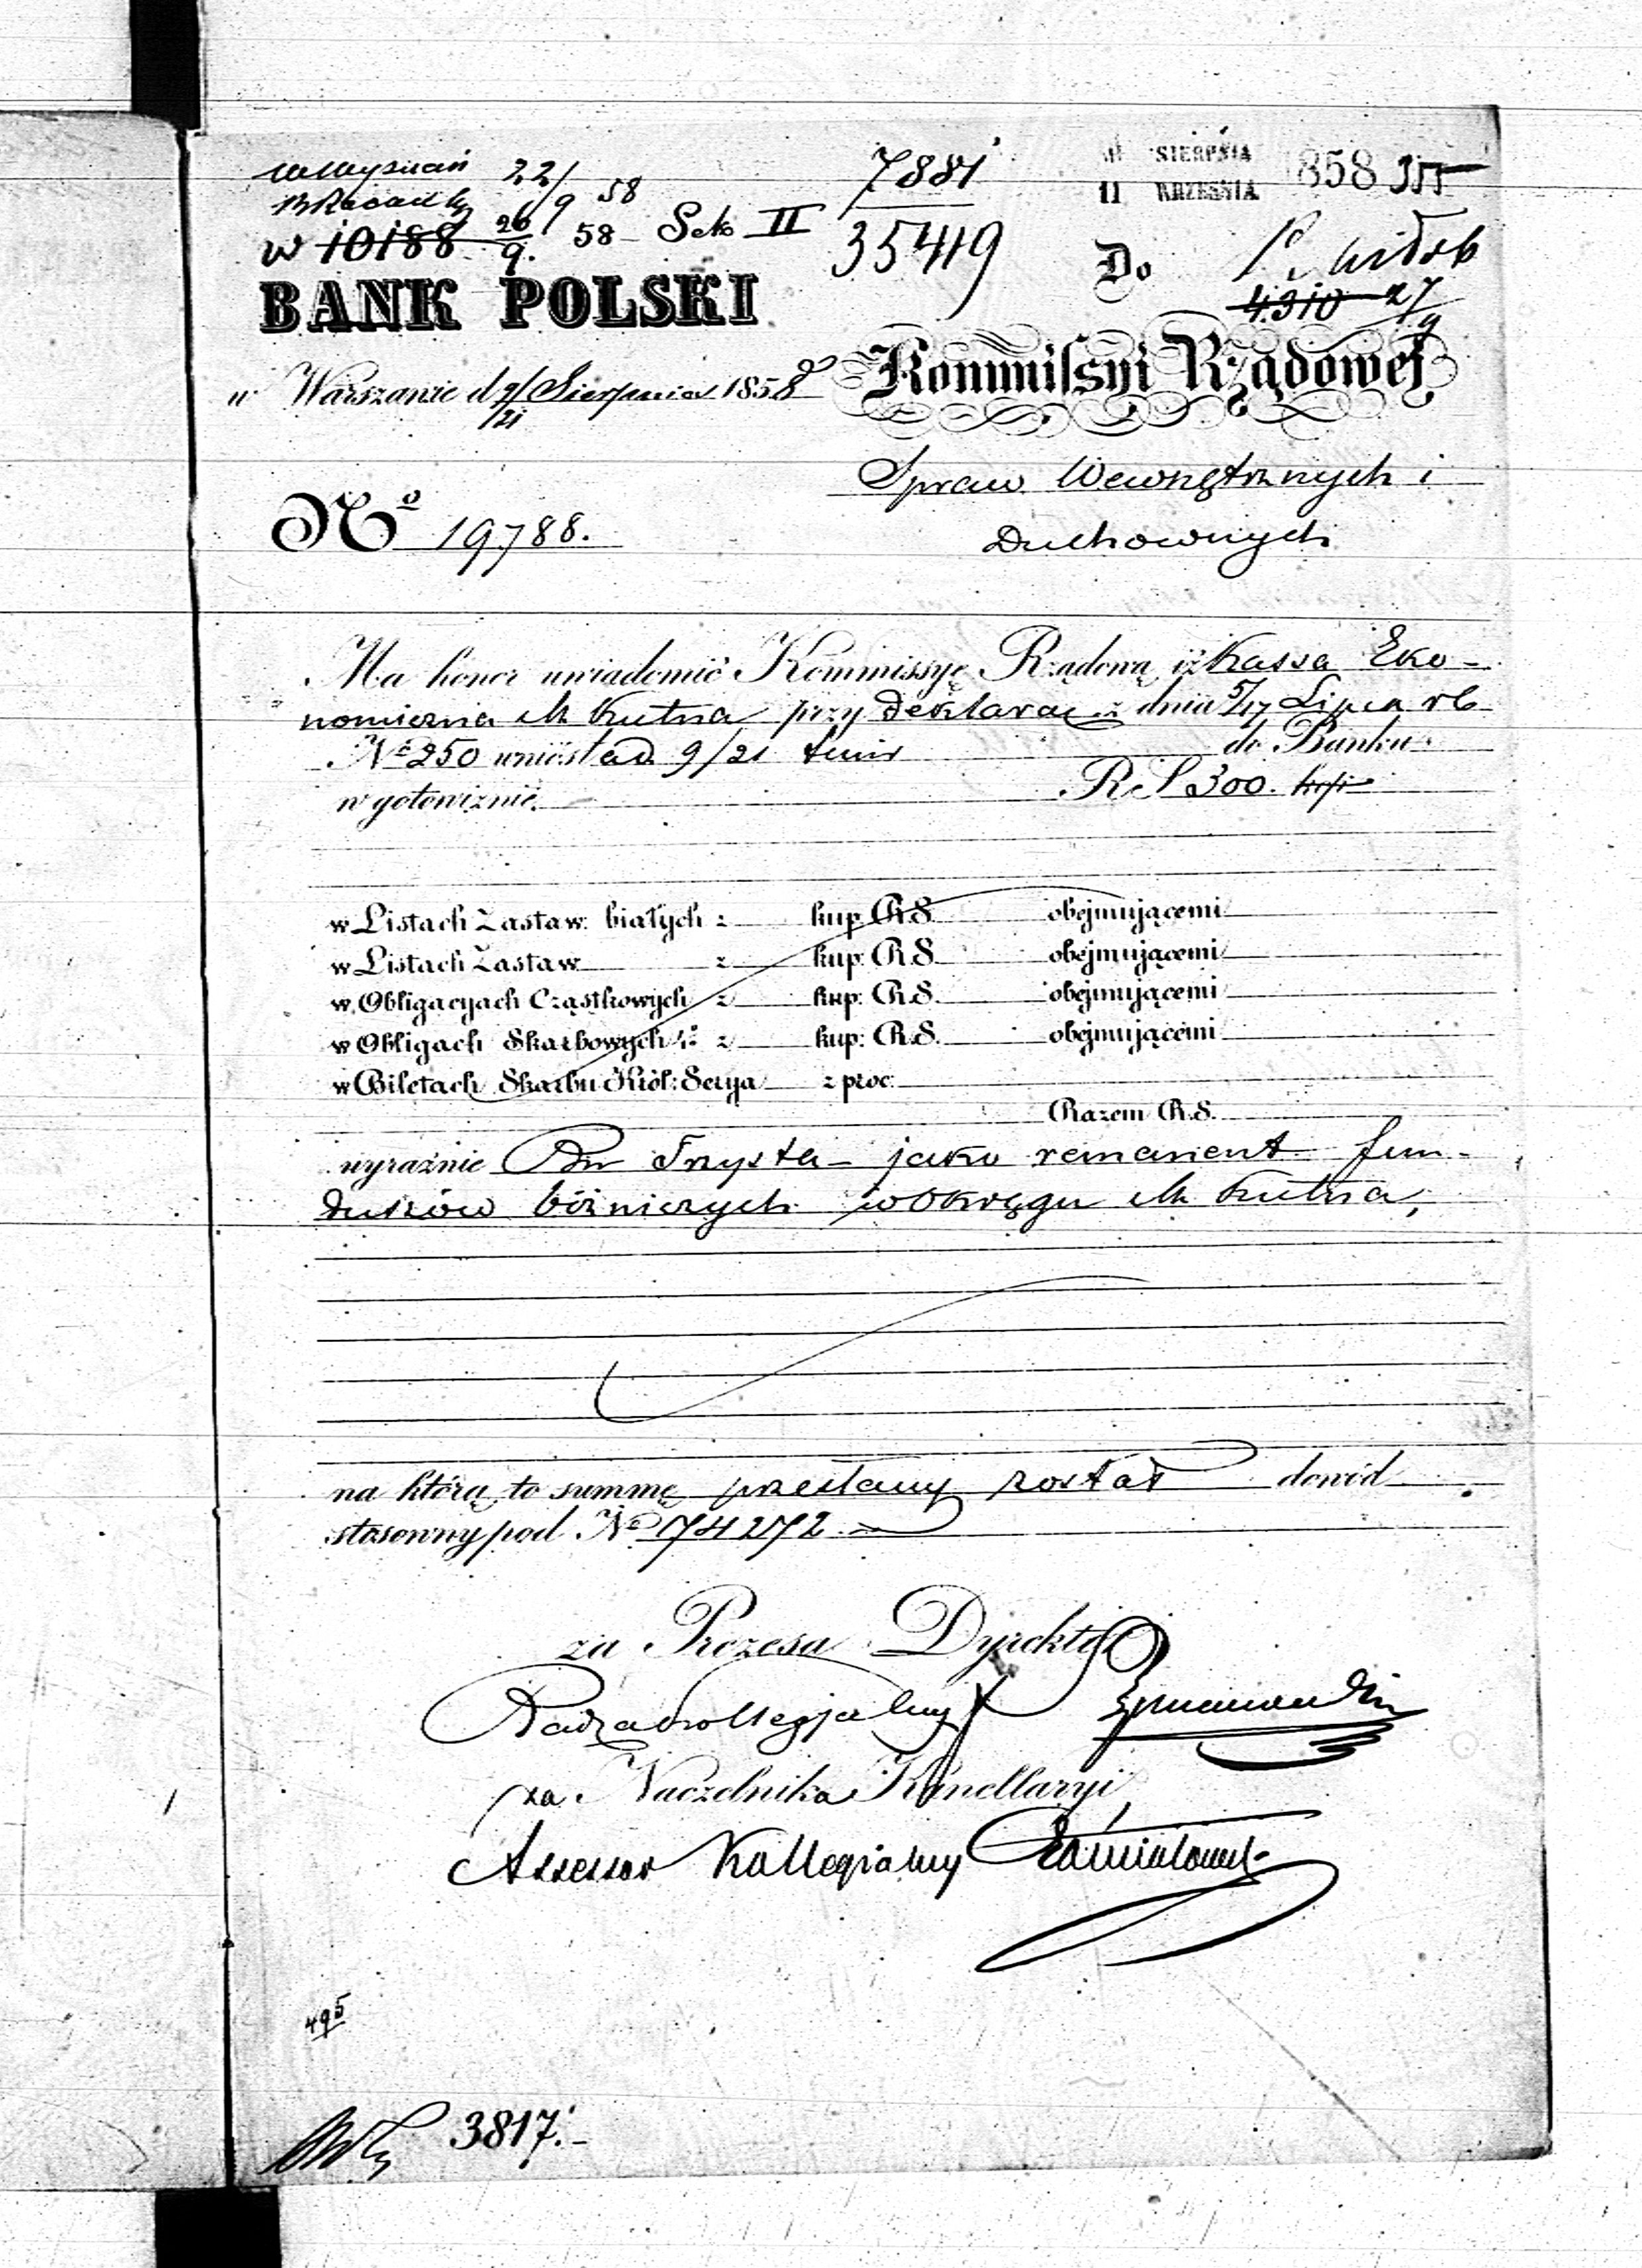 22/9 58
7881
SIERPNIA
11 WRZEŚNIA 1858
w 10188 26/9. 58 Sek II
35419
Do
4310 27/9
BANK POLSKI
Kommissyi Rządowej
w Warszawie d 9/21 Sierpnia 1858
Spraw Wewnętrznych i
Duchownych
No 19788.
Ma honor uwiadomić Kommissyę Rządową iż Kassa Eko-
nomiczna M Kutna przy deklaracji z dnia 5/17 Lipca rb
No 250 wniosła d 9/21 do Banku
w gotowiznie. RS 300. kop
w Listach Zastaw. białych z kup. R.S. obejmującemi
w Listach Zastaw z kup. R.S. obejmującemi
w Obligacyach Cząstkowych z kup. R.S. obejmującemi
w Obligach Skarbowych z kup: R.S. obejmującemi
w Biletach Skarbu Król: Serya z proc:
Razem R.S.
wyraźnie Rs Trzysta - jako remanent fun-
duszów bóżniczych w Okręgu M Kutna,
na którą to summę przesłany został dowód
stosowny pod No 74272
za Prezesa Dyrektor
Radza Kollegjalny
za Naczelnika Kancellaryi
Assessor Kollegialny
495
3817.-